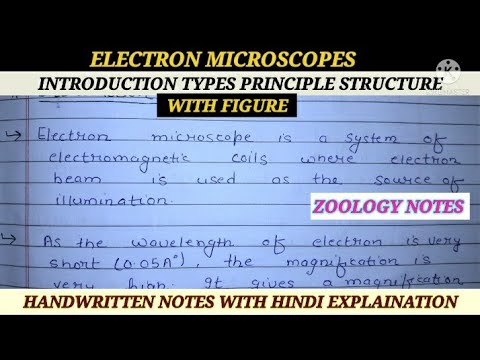 ELECTRON MICROSCOPES
INTRODUCTION TYPES PRINCIPLE STRUCTURE
WITH FIGURE
→ Electron microscope is a system of
electromagnetic coils where electron
beam is used as the source of
illumination.
ZOOLOGY NOTES
→ As the wavelength of electron is very
short (0.05A°), the magnification is
very high. It gives a magnification
HANDWRITTEN NOTES WITH HINDI EXPLAINATION